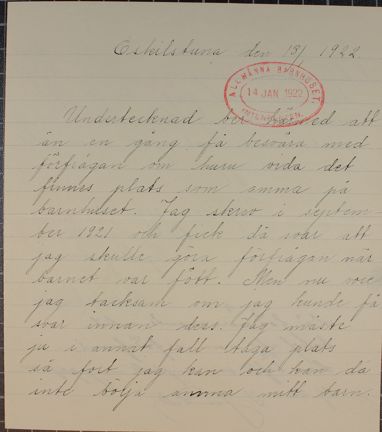 Eskilstuna den 13/1 1922
ALLMÄNNA BARNHUSET
14 JAN 1922
Undertecknad ber härmed att
än en gång få besvära med
förfrågan om huru vida det
finnes plats som amma på
barnhuset. Jag skrev i septem
ber 1921 och fick då svar att
jag skulle göra förfrågan när
barnet var fött. Men nu vore
jag tacksam om jag kunde få
svar innan dess. Jag måste
ju i annat fall taga plats
så fort jag kan och kan då
inte börja amma mitt barn.